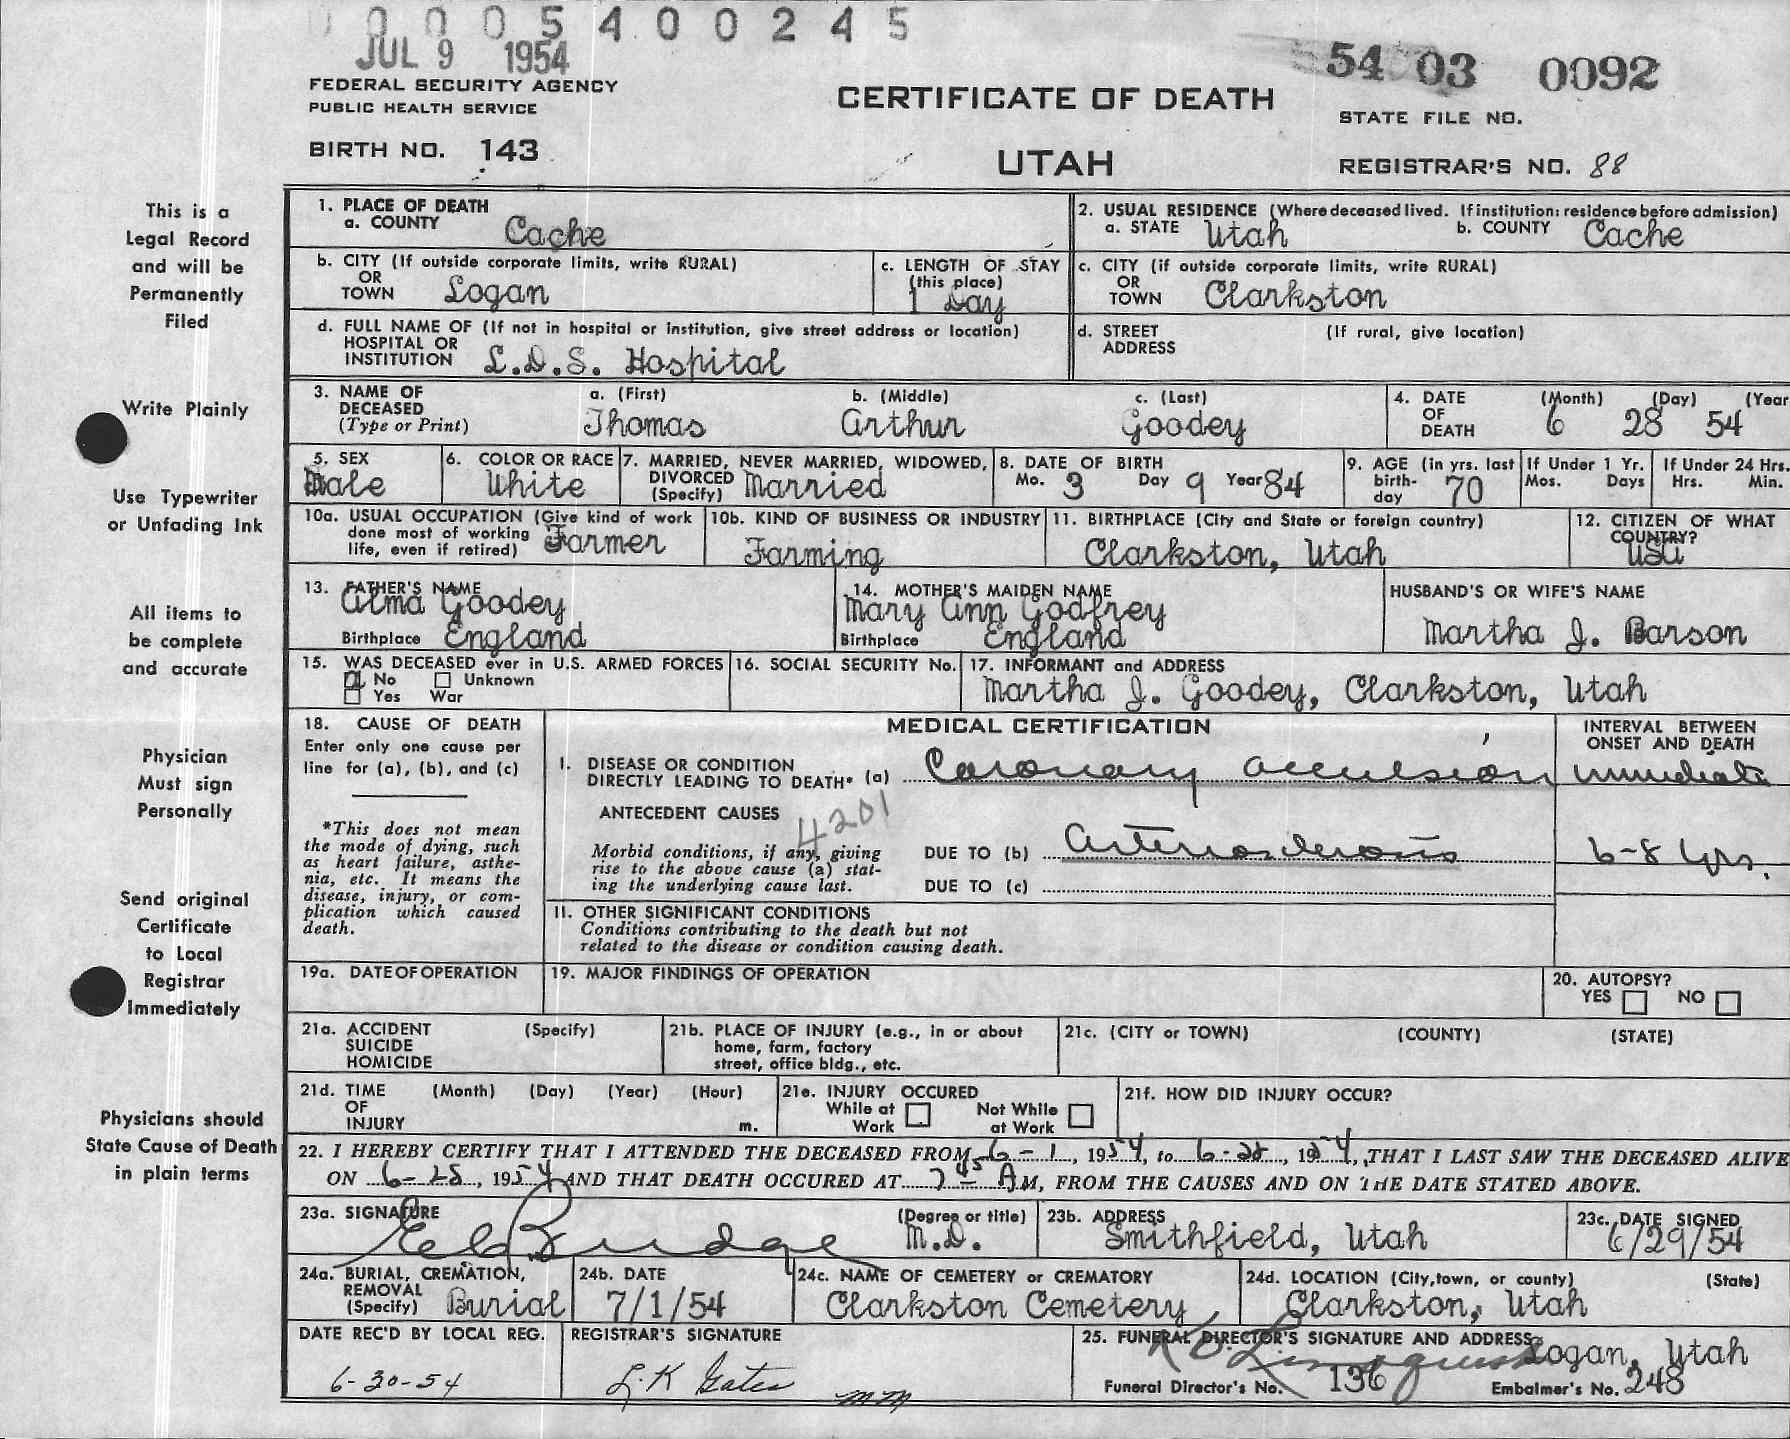 0 0 0 5 4 0 0 2 4 5
JUL 9 1954
54 03 0092
FEDERAL SECURITY AGENCY
PUBLIC HEALTH SERVICE
CERTIFICATE OF DEATH
STATE FILE NO.
BIRTH NO. 143
UTAH
REGISTRAR'S NO. 88
This is a
Legal Record
and will be
Permanently
Filed
Write Plainly
Use Typewriter
or Unfading Ink
All items to
be complete
and accurate
Physician
Must sign
Personally
Send original
Certificate
to Local
Registrar
Immediately
Physicians should
State Cause of Death
in plain terms
1. PLACE OF DEATH
a. COUNTY Cache
2. USUAL RESIDENCE (Where deceased lived. If institution: residence before admission)
a. STATE Utah b. COUNTY Cache
b. CITY (If outside corporate limits, write RURAL)
OR
TOWN Logan
c. LENGTH OF STAY
(this place)
1 Day
c. CITY (if outside corporate limits, write RURAL)
OR
TOWN Clarkston
d. FULL NAME OF (If not in hospital or institution, give street address or location)
HOSPITAL OR
INSTITUTION L.D.S. Hospital
d. STREET (If rural, give location)
ADDRESS
3. NAME OF
DECEASED
(Type or Print)
a. (First) b. (Middle) c. (Last)
Thomas Arthur Goodey
4. DATE (Month) (Day) (Year
OF
DEATH 6 28 54
5. SEX
Male
6. COLOR OR RACE
White
7. MARRIED, NEVER MARRIED, WIDOWED,
DIVORCED
(Specify) Married
8. DATE OF BIRTH
Mo. 3 Day 9 Year 84
9. AGE (in yrs. last
birth-
day 70
If Under 1 Yr.
Mos. Days
If Under 24 Hrs.
Hrs. Min.
10a. USUAL OCCUPATION (Give kind of work
done most of working
life, even if retired) Farmer
10b. KIND OF BUSINESS OR INDUSTRY
Farming
11. BIRTHPLACE (City and State or foreign country)
Clarkston, Utah
12. CITIZEN OF WHAT
COUNTRY?
USA
13. FATHER'S NAME
Alma Goodey
Birthplace England
14. MOTHER'S MAIDEN NAME
Mary Ann Godfrey
Birthplace England
HUSBAND'S OR WIFE'S NAME
Martha J. Barson
15. WAS DECEASED ever in U.S. ARMED FORCES
No Unknown
Yes War
16. SOCIAL SECURITY No.
17. INFORMANT and ADDRESS
Martha J. Goodey, Clarkston, Utah
18. CAUSE OF DEATH
Enter only one cause per
line for (a), (b), and (c)
*This does not mean
the mode of dying, such
as heart failure, asthe-
nia, etc. It means the
disease, injury, or com-
plication which caused
death.
MEDICAL CERTIFICATION
INTERVAL BETWEEN
ONSET AND DEATH
I. DISEASE OR CONDITION
DIRECTLY LEADING TO DEATH* (a) Coronary occulsion immediate
ANTECEDENT CAUSES
4201
Morbid conditions, if any, giving
rise to the above cause (a) stat-
ing the underlying cause last.
DUE TO (b) arteriosclerosis 6-8 yrs.
DUE TO (c)
II. OTHER SIGNIFICANT CONDITIONS
Conditions contributing to the death but not
related to the disease or condition causing death.
19a. DATE OF OPERATION
19. MAJOR FINDINGS OF OPERATION
20. AUTOPSY?
YES NO
21a. ACCIDENT (Specify)
SUICIDE
HOMICIDE
21b. PLACE OF INJURY (e.g., in or about
home, farm, factory
street, office bldg., etc.
21c. (CITY or TOWN) (COUNTY) (STATE)
21d. TIME (Month) (Day) (Year) (Hour)
OF
INJURY m.
21e. INJURY OCCURED
While at Not While
Work at Work
21f. HOW DID INJURY OCCUR?
22. I HEREBY CERTIFY THAT I ATTENDED THE DECEASED FROM 6-1, 1954, to 6-28, 1954, THAT I LAST SAW THE DECEASED ALIVE
ON 6-28, 1954 AND THAT DEATH OCCURED AT 7 45 A M, FROM THE CAUSES AND ON THE DATE STATED ABOVE.
23a. SIGNATURE (Degree or title)
Budge M.D.
23b. ADDRESS
Smithfield, Utah
23c. DATE SIGNED
6/29/54
24a. BURIAL, CREMATION,
REMOVAL
(Specify) Burial
24b. DATE
7/1/54
24c. NAME OF CEMETERY or CREMATORY
Clarkston Cemetery
24d. LOCATION (City, town, or county) (State)
Clarkston, Utah
DATE REC'D BY LOCAL REG.
6-30-54
REGISTRAR'S SIGNATURE
L.K Gates mm
25. FUNERAL DIRECTOR'S SIGNATURE AND ADDRESS
Logan, Utah
Funeral Director's No. 136 Embalmer's No. 248